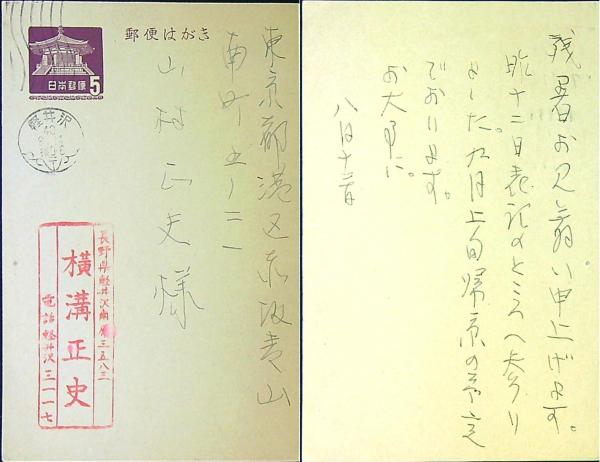 郵便はがき
日本郵便
5
軽井沢
東京都港区赤坂青山
南町五ノ二一
山村正夫様
長野県軽井沢南原三五八三
横溝正史
電話軽井沢三一一七
残暑お見舞い申上げます。
昨十二日表記のところへ参り
ました。九月上旬帰京の予定
でおります。
お大事に。
八月十三日